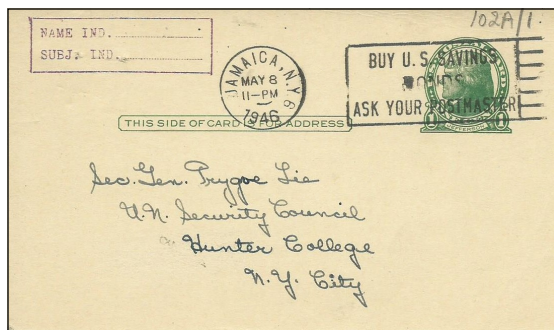 102A/1.
NAME IND.
SUBJ. IND.
JAMAICA, N.Y. 6
MAY 8
11-PM
1946
BUY U.S. SAVINGS
BONDS
ASK YOUR POSTMASTER
THIS SIDE OF CARD IS FOR ADDRESS
1 1
JEFFERSON
Sec. Gen. Trygve Lie
U.N. Security Council
Hunter College
N.Y. City